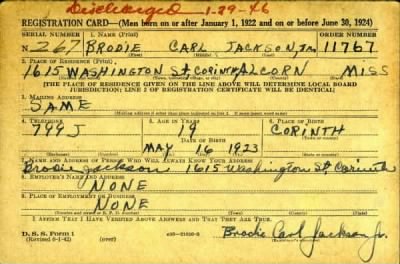 Discharged 1-29-46
REGISTRATION CARD—(Men born on or after January 1, 1922 and on or before June 30, 1924)
SERIAL NUMBER 1. NAME (Print) ORDER NUMBER
N 267 BRODIE CARL JACKSON, JR 11767
2. PLACE OF RESIDENCE (Print)
1615 WASHINGTON St CORINTH ALCORN MISS
[THE PLACE OF RESIDENCE GIVEN ON THE LINE ABOVE WILL DETERMINE LOCAL BOARD
JURISDICTION; LINE 2 OF REGISTRATION CERTIFICATE WILL BE IDENTICAL]
3. MAILING ADDRESS
SAME
4. TELEPHONE 5. AGE IN YEARS 6. PLACE OF BIRTH
799J 19 CORINTH
DATE OF BIRTH
MAY 16 1923
7. NAME AND ADDRESS OF PERSON WHO WILL ALWAYS KNOW YOUR ADDRESS
Brodie Jackson 1615 Washington St, Corinth
8. EMPLOYER'S NAME AND ADDRESS
NONE
9. PLACE OF EMPLOYMENT OR BUSINESS
NONE
I AFFIRM THAT I HAVE VERIFIED ABOVE ANSWERS AND THAT THEY ARE TRUE.
D. S. S. Form 1
(Revised 6-1-42) (over) Brodie Carl Jackson Jr.